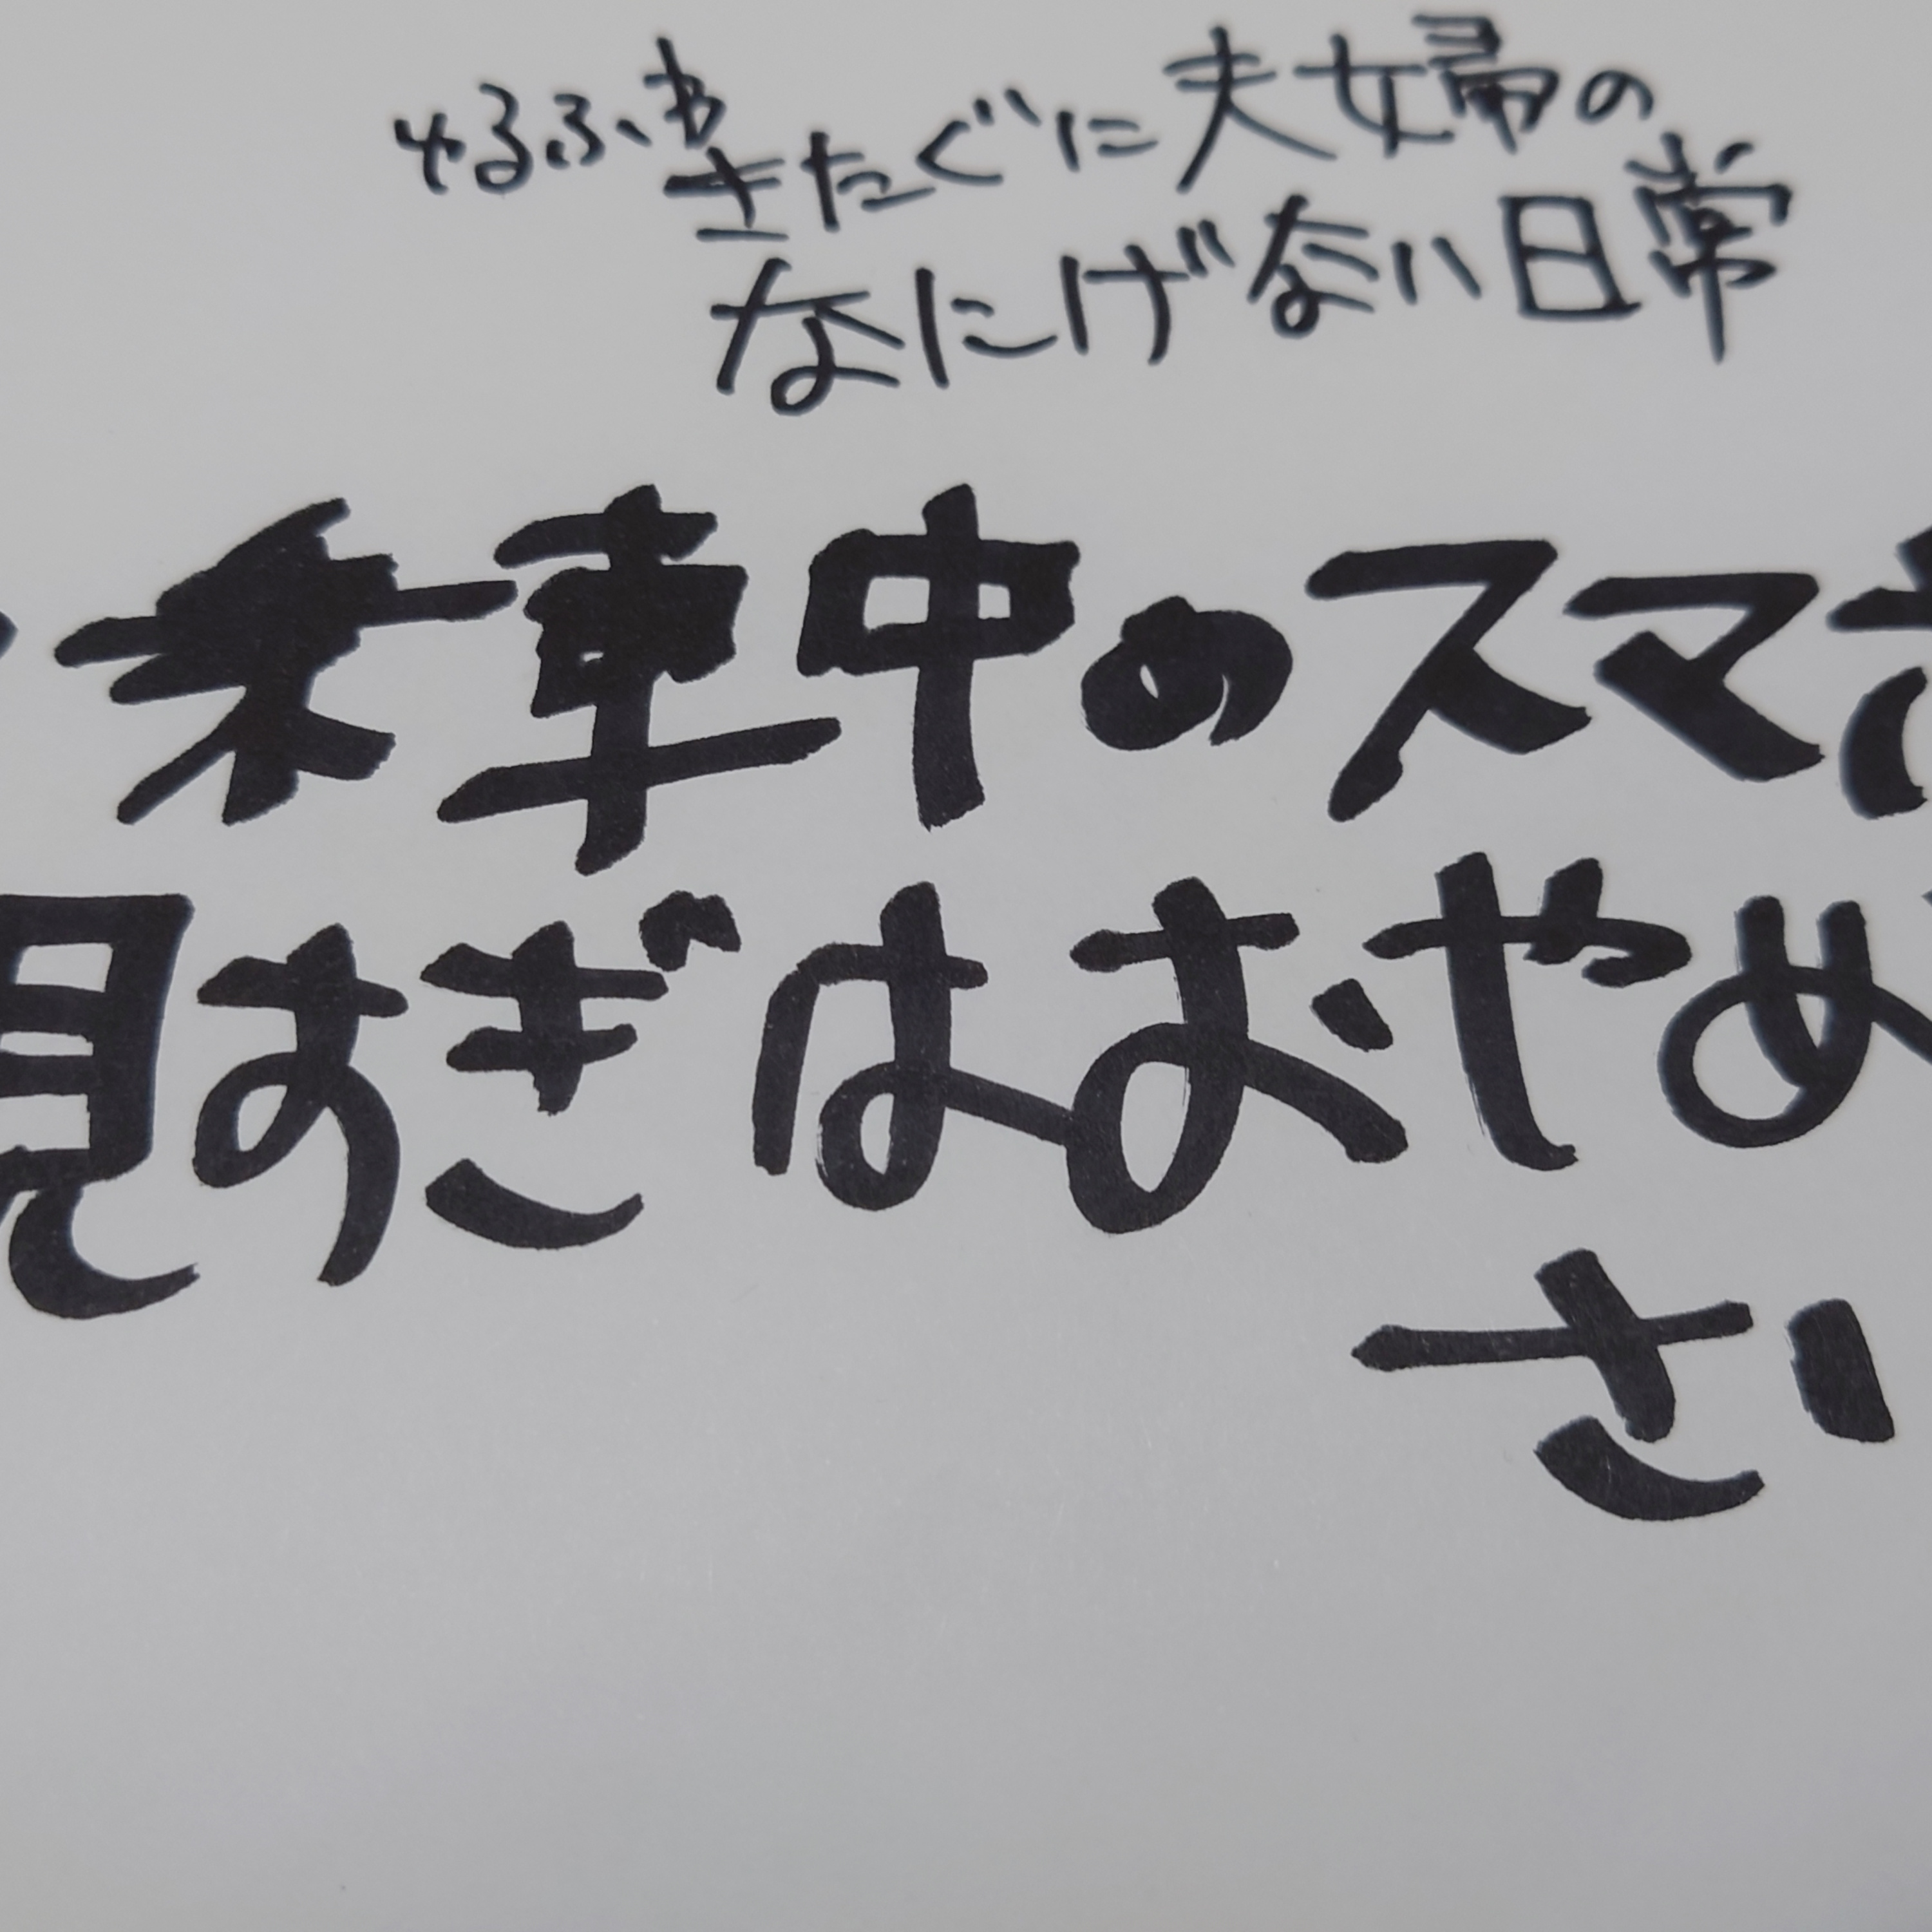 ゆるふわ
きたぐに夫婦の
なにげない日常
乗車中のスマホ
見すぎはおやめ
さい